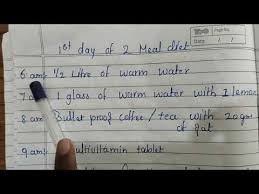 1st day of 2 Meal diet
6 am 1/2 Litre of warm water
7 1 glass of warm water with 1 lemon
8 am Bullet proof coffee / tea with 20 gm
of fat
9 am multivitamin tablet